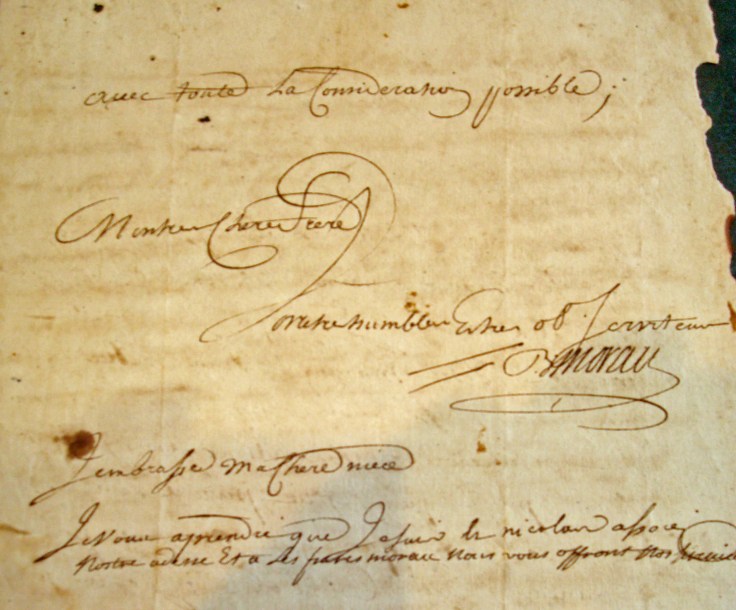 avec toute La Consideration possible;
Montres Chere frere
Votre tres humble Et tres ob. serviteur
Bmorau
J'embrasse Ma Chere niece
Je vous aprendré que Je suis de nicolas
Nostre Et a Les freres morau Nous vous offront Nos